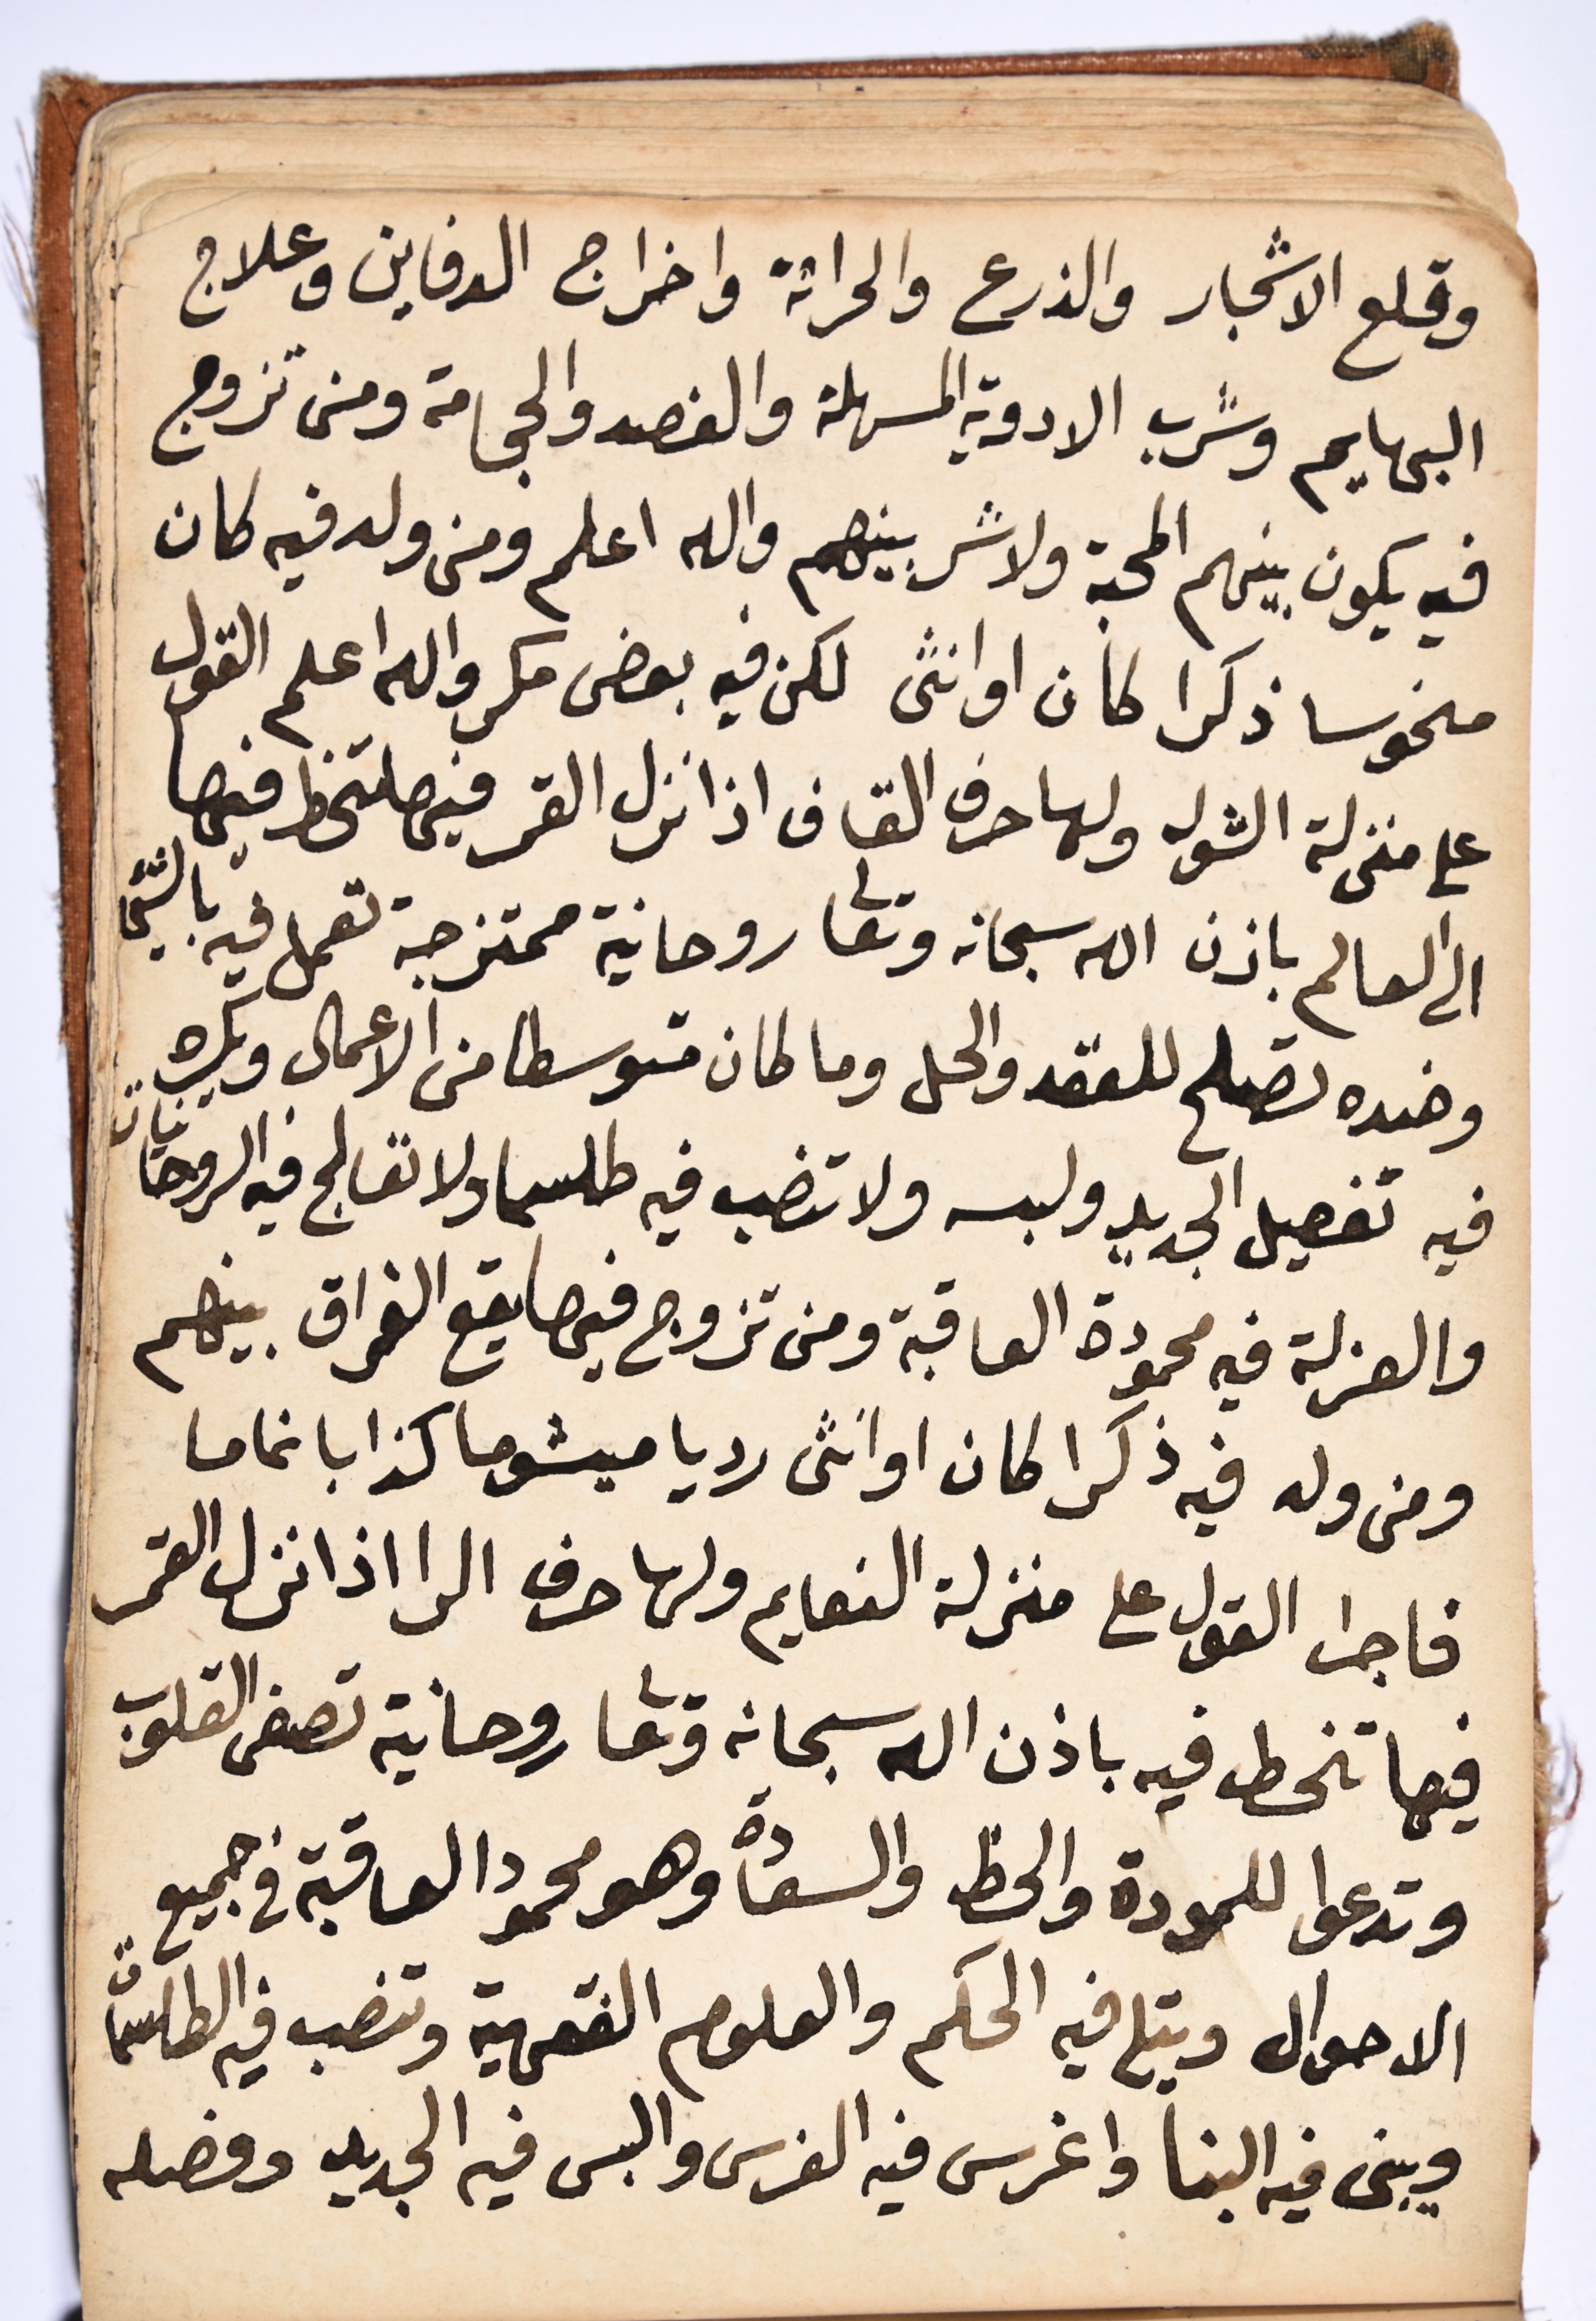 وقلع الاشجار والذرع والحراثة واخراج الدفاين وعلاج
البهايم وشرب الادوية المسهلة والفصد والحجامة ومن تزوج
فيه يكون بينهم المحبة ولا شر بينهم والله اعلم ومن ولد فيه كان
منحوسا ذكرا كان او انثى لكن فيه بعض مكر والله اعلم القول
على منزلة الشوله ولها حرف القاف اذا نزل القمر فيها تنحط فيها
الى العالم باذن الله سبحانه وتعا روحانية ممتزجة تعمل فيه بالشيئ
وضده تصلح للعقد والحل وما كان متوسطا من الاعمال ويكره
فيه تفصيل الجديد ولبسه ولا تنصب فيه طلسما ولا تعالج فيه الروحانيات
والعزلة فيه محمودة العاقبة ومن تزوج فيها يقع الفراق بينهم
ومن ولد فيه ذكرا كان او انثى رديا ميشوما كذابا نماما
فاجرا القول على منزلة النعايم ولها حرف الرا اذا نزل القمر
فيها تنحط فيه باذن الله سبحانه وتعا روحانية تصفى القلوب
وتدعوا للمودة والحظ والسعادة وهو محمود العاقبة في جميع
الاحوال ويتلى فيه الحكم والعلوم الفقهية وتنصب فيه الطلسمات
ويبنى فيه البنا واغرس فيه الغرس والبس فيه الجديد وفصله